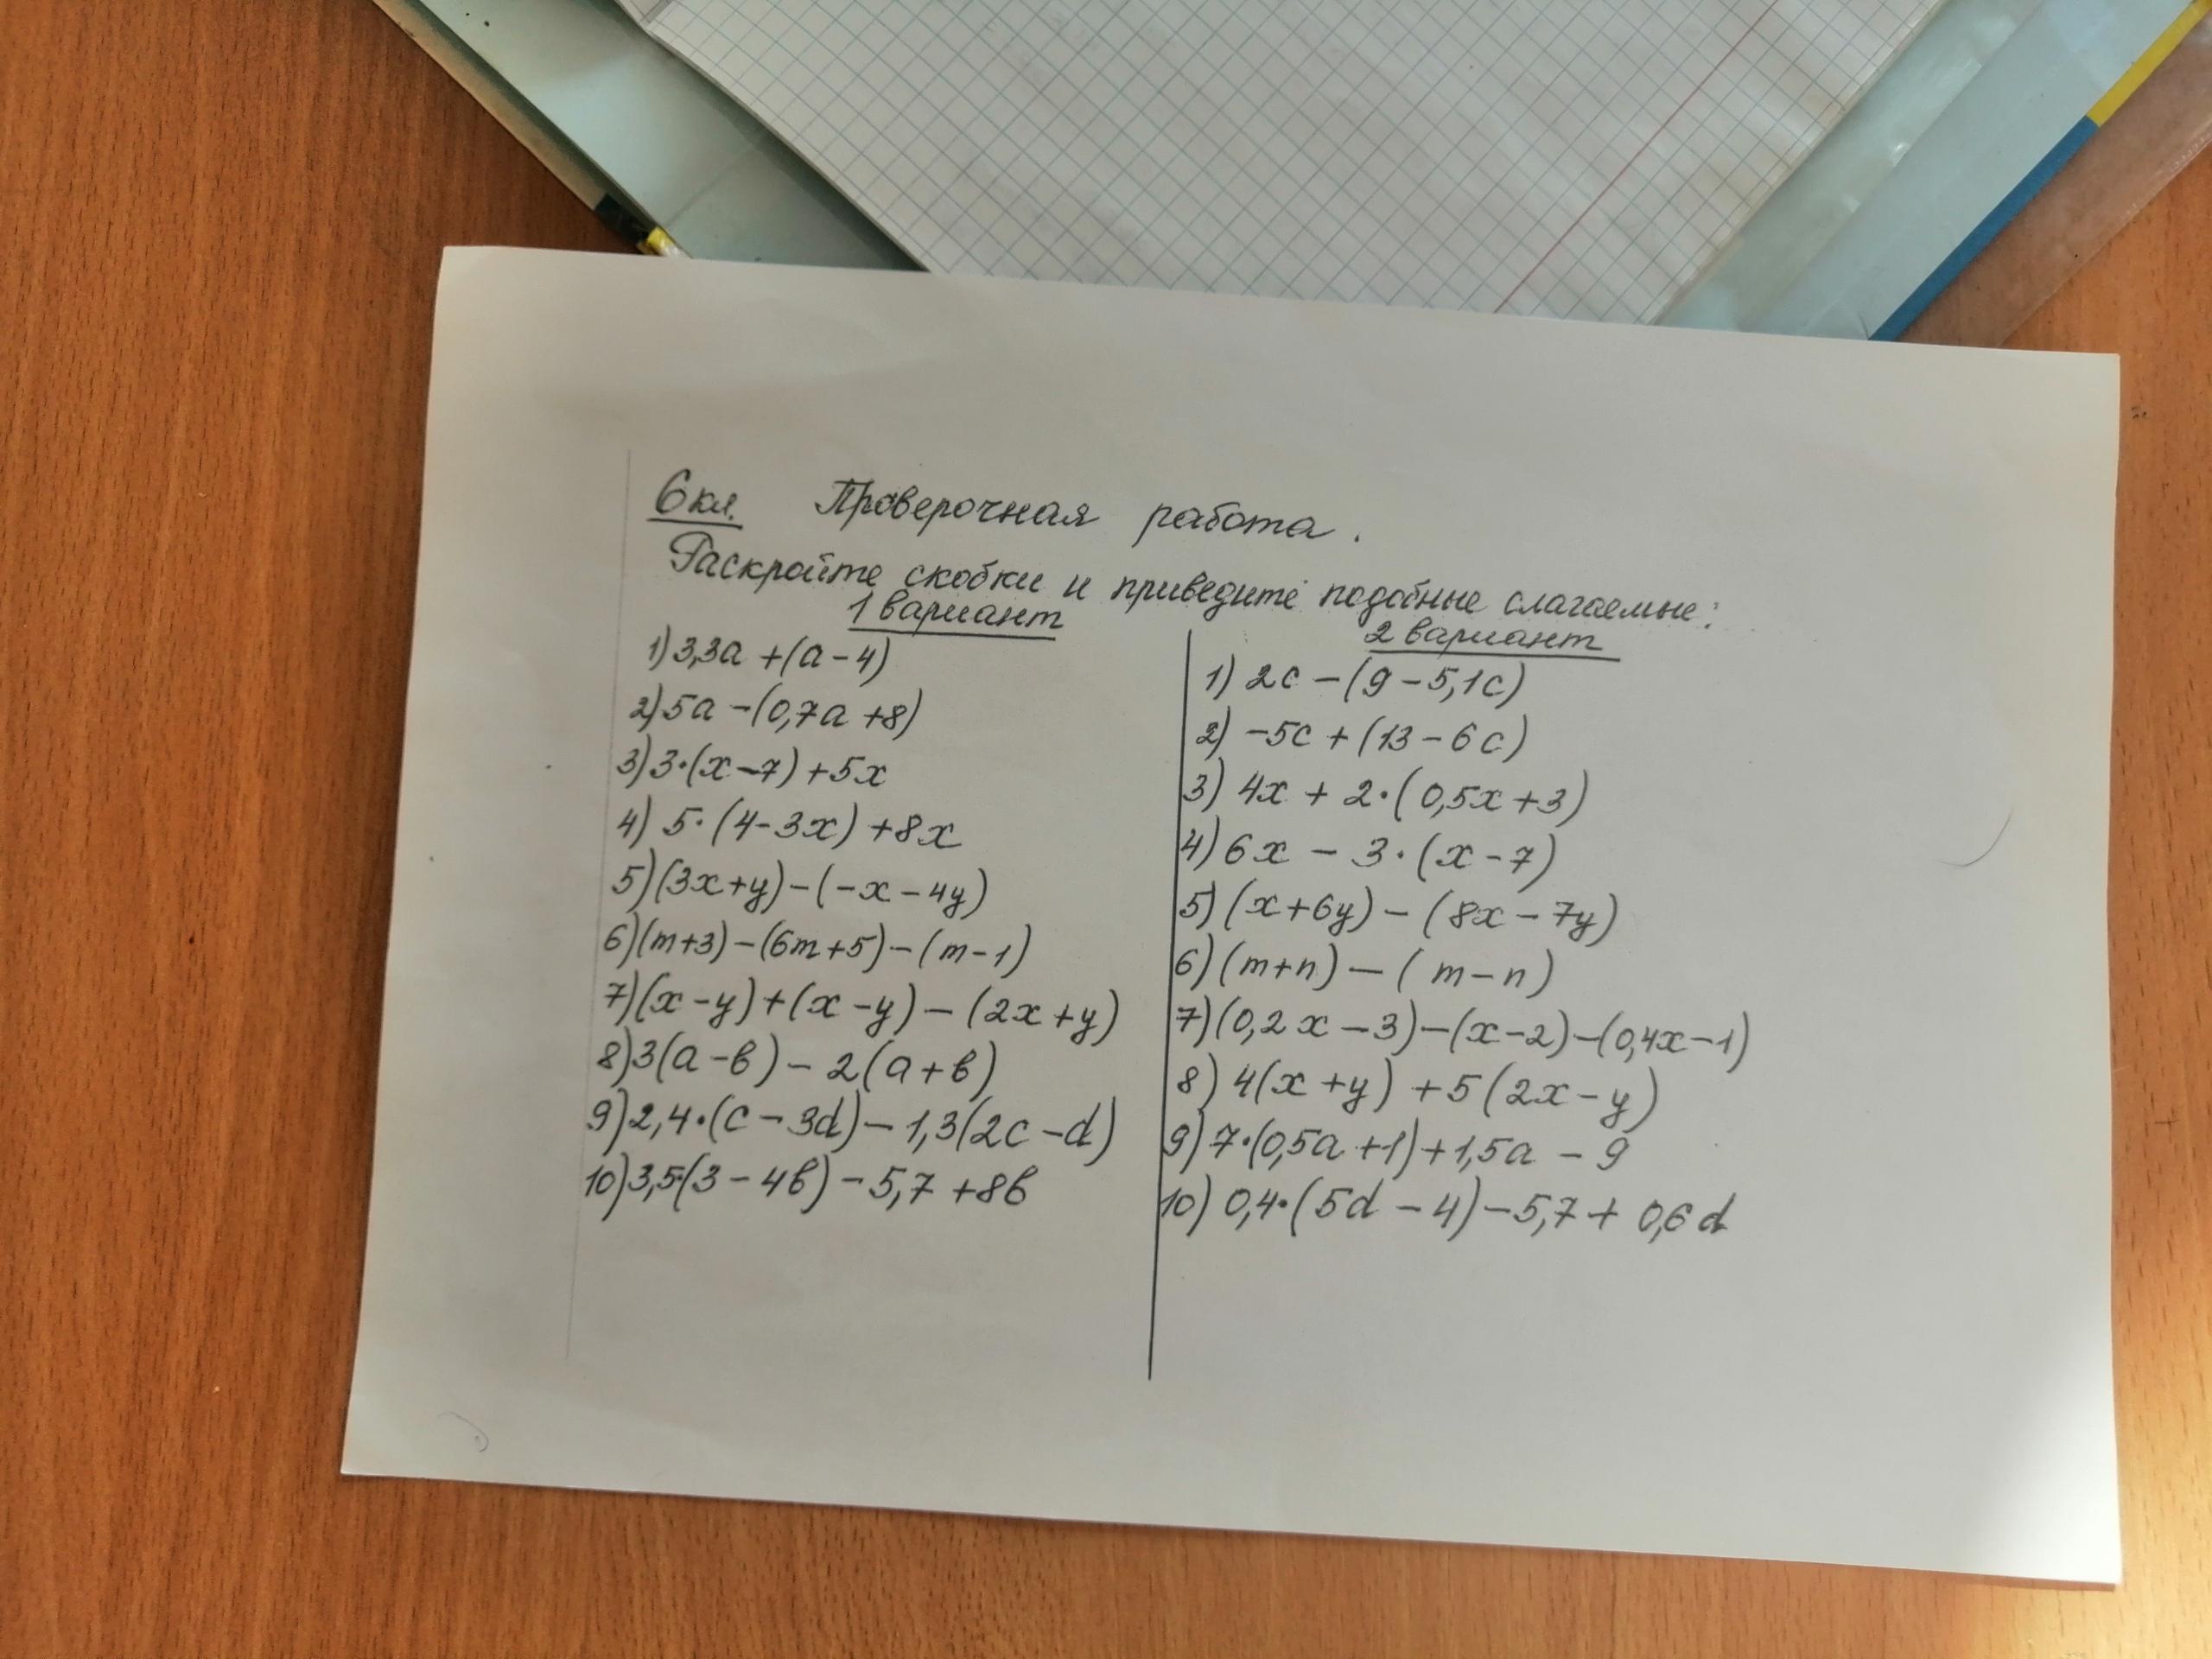 6кл. Проверочная работа.
Раскройте скобки и приведите подобные слагаемые:
1 вариант
1) 3,3a + (a - 4)
2) 5a - (0,7a + 8)
3) 3·(x - 7) + 5x
4) 5·(4 - 3x) + 8x
5) (3x + y) - (-x - 4y)
6) (m + 3) - (6m + 5) - (m - 1)
7) (x - y) + (x - y) - (2x + y)
8) 3(a - b) - 2(a + b)
9) 2,4·(c - 3d) - 1,3(2c - d)
10) 3,5·(3 - 4b) - 5,7 + 8b
2 вариант
1) 2c - (9 - 5,1c)
2) -5c + (13 - 6c)
3) 4x + 2·(0,5x + 3)
4) 6x - 3·(x - 7)
5) (x + 6y) - (8x - 7y)
6) (m + n) - (m - n)
7) (0,2x - 3) - (x - 2) - (0,4x - 1)
8) 4(x + y) + 5(2x - y)
9) 7·(0,5a + 1) + 1,5a - 9
10) 0,4·(5d - 4) - 5,7 + 0,6d